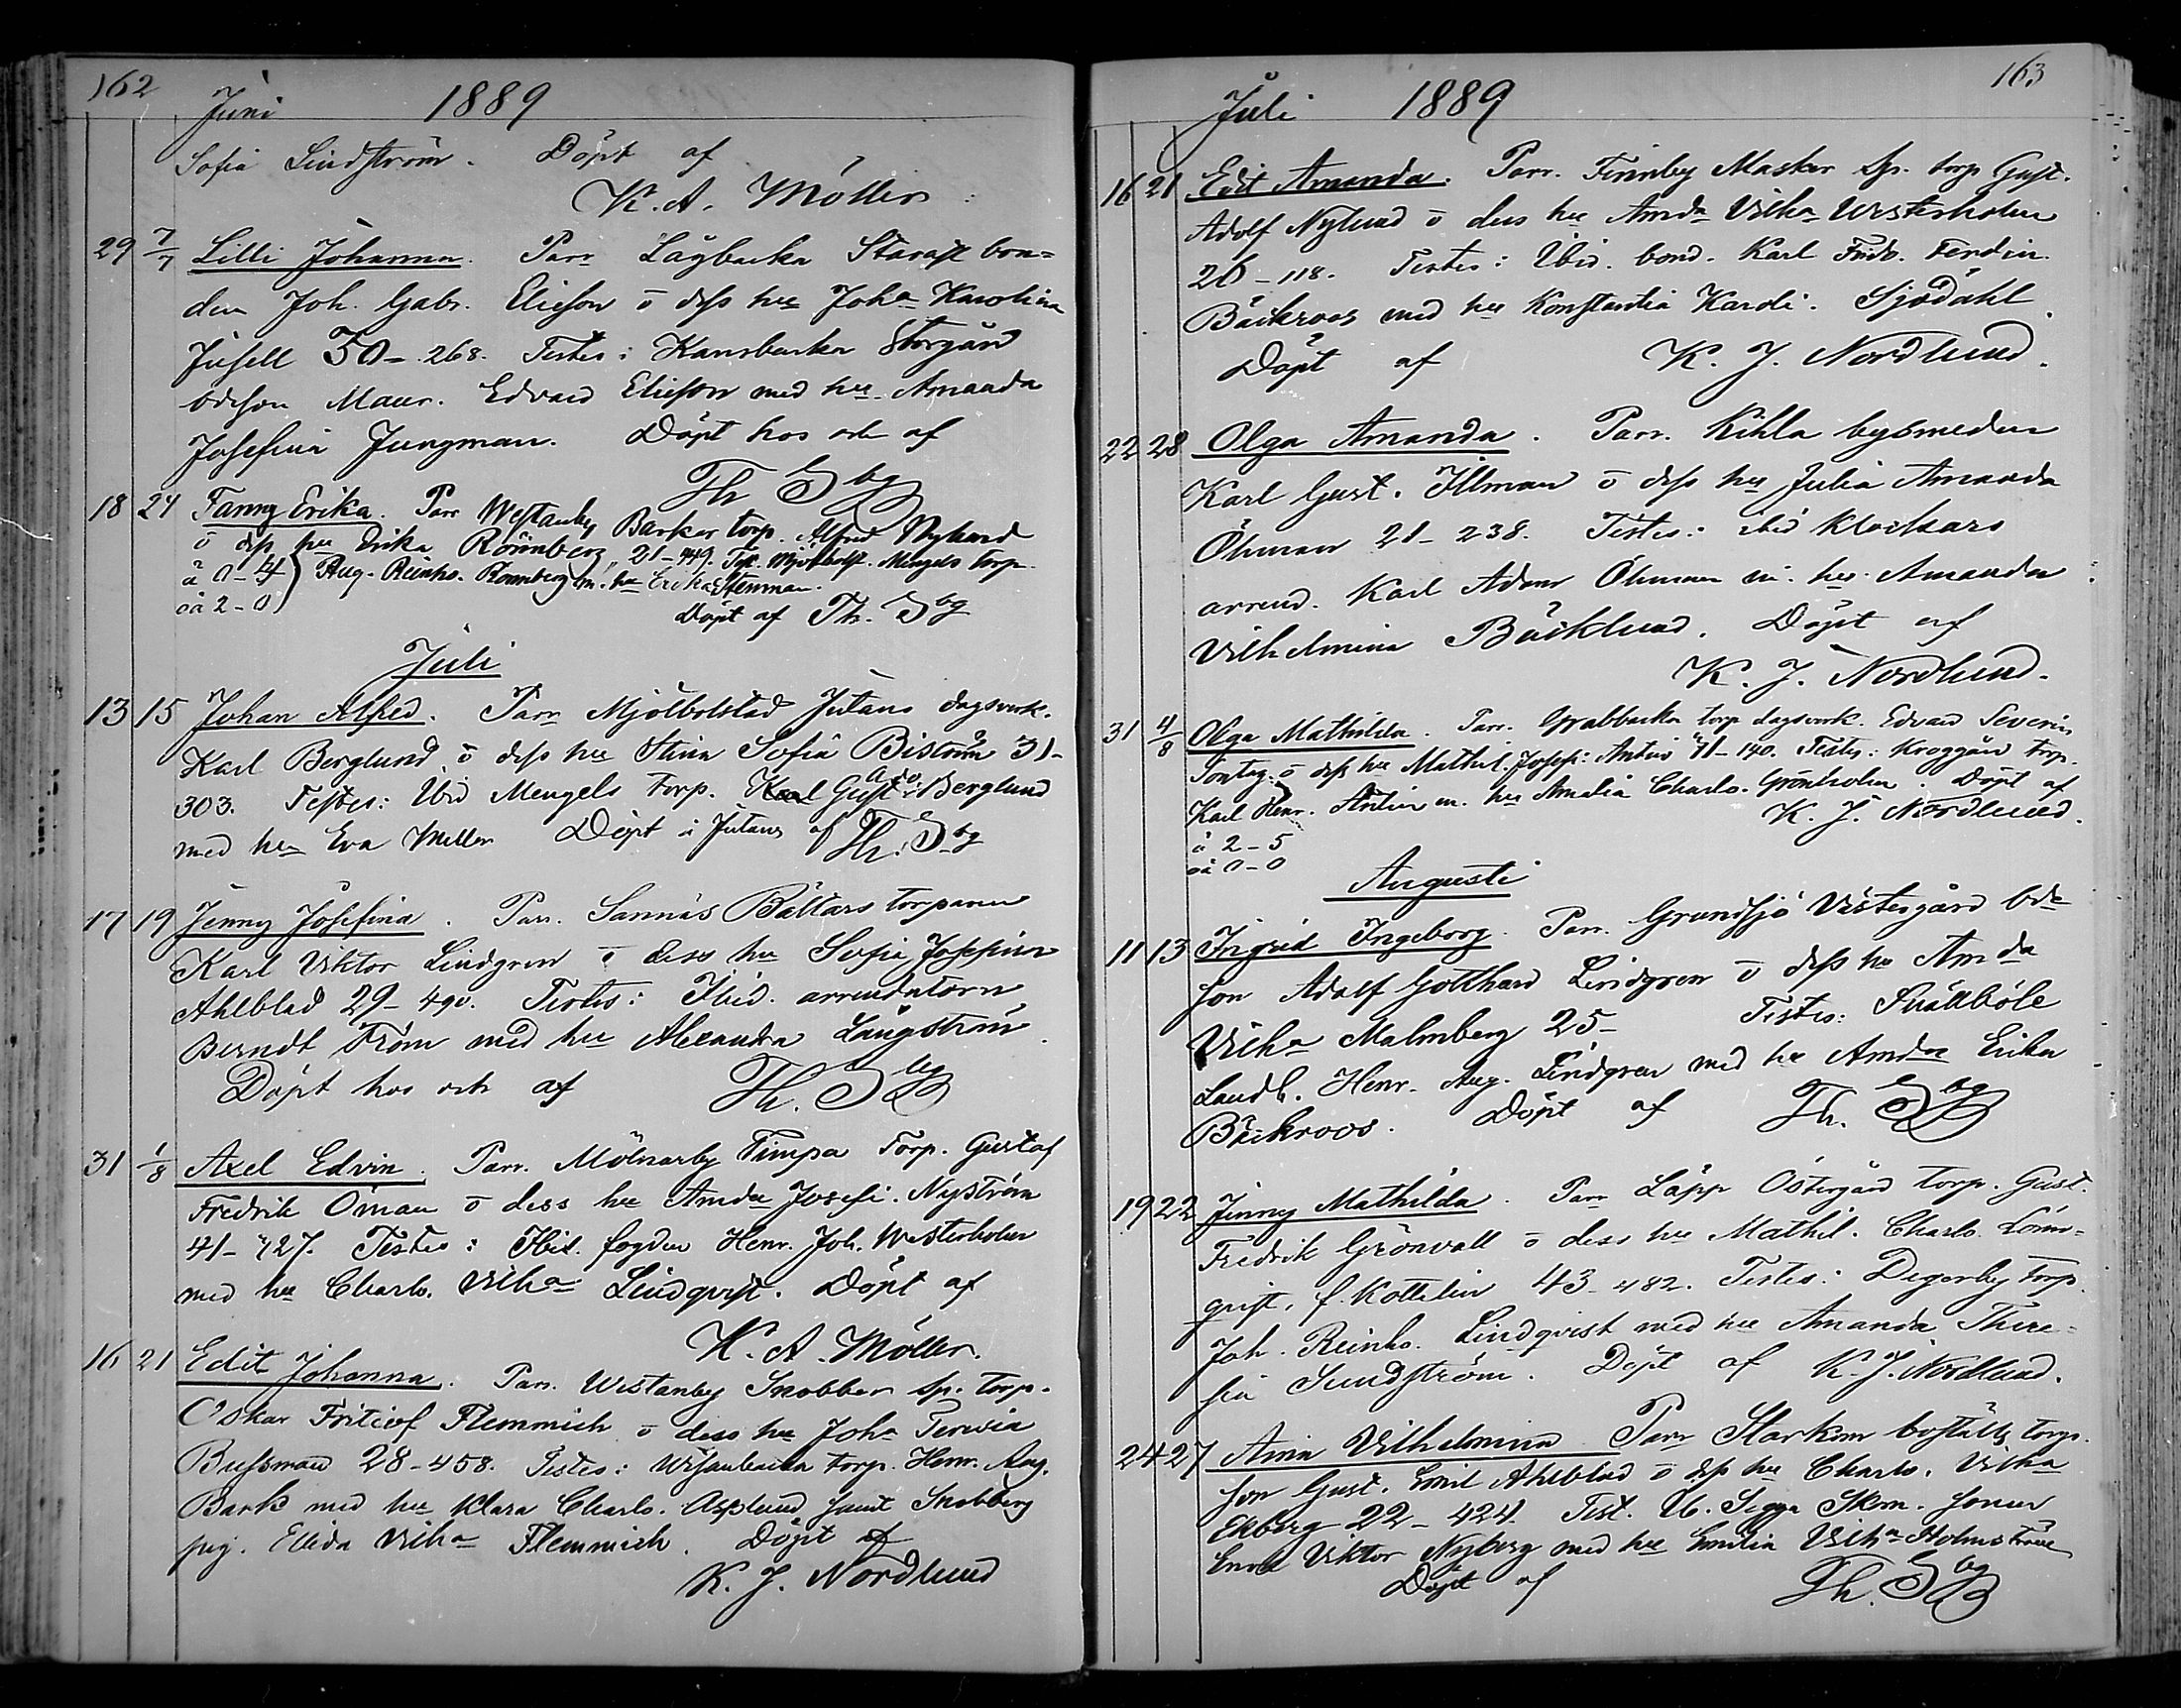 162
Juni 1889
Sofia Lindström. Döpt af
K. A. Möller
29 7/7 Lilli Johanna. Parr Lågbacka Starast bon=
den Joh. Gabr. Elieson o dess hu Joha Karolina
Jusell 30-268. Testes: Kansbacka Storgård
bdeson Maur. Edvard Elieson med hu Amanda
Josefina Jungman. Döpt hos och af
Th Sbg
18 24 Fanny Erika. Parr Westanby Barkar torp. Alfred Nylund
o dess hu Erika Rönnberg, 21-449. Test. Mjölbolst. Mengels torp.
ä 0-4 } Aug. Reinho. Rönnberg m. hu Erika Stenman.
oä 2-0 Döpt af Th. Sbg
Juli
13 15 Johan Alfred. Parr Mjölbolstad Jutans dagsverk.
Karl Berglund o dess hu Stina Sofia Biström 31-
303. Testes: Ibid Mengels torp. Gust Ado Berglund
med hu Eva Meller Döpt i Jutans af Th. Sbg
17 19 Jenny Josefina. Parr. Sannäs Bältars torparen
Karl Viktor Lindgren o dess hu Sofia Josefina
Ahlblad 29-490. Testes: Ibid. arrendatorn
Berndt Fröm med hu Alexandra Långström.
Döpt hos och af Th. Sbg
31 1/8 Axel Edvin. Parr. Mölnarby Timpa Torp. Gustaf
Fredrik Öman o dess hu Amda Josefi. Nyström
41-127. Testes: Ibid. fogden Henr. Joh. Westerholm
med hu Charlo. Vilha Lindqvist. Döpt af
K. A. Möller.
16 21 Edit Johanna. Parr. Westanby Snobber sp. torp.
Oskar Fritiof Flemmich o dess hu Joha Teresia
Bussman 28-458. Testes: torp. Henr. Aug.
Bark med hu Klara Charlo. Asplund samt Snobberg
pig. Elida Vilha Flemmich. Döpt af
K. J. Nordlund
163
Juli 1889
16 21 Edit Amanda. Parr. Finnby Masker sp. torp Gust.
Adolf Nylund o dess hu Amda Vilha Westerholm
26-118. Testes: Ibid. bond. Karl Fredr. Ferdin.
Bäckroos med hu Konstantia Karoli. Sjödahl.
Döpt af K. J. Nordlund.
22 28 Olga Amanda. Parr. Kihla bysmeden
Karl Gust. Illman o dess hu Julia Amanda
Öhman 21-238. Testes: ibid Klockars
arrend. Karl Adam Öhman m. hu Amanda
Vilhelmina Bäcklund. Döpt af
K. J. Nordlund.
31 4/8 Olga Mathilda. Parr. Grabbacka torp dagsverk. Edvard Severin
Sontag o dess hu Mathil. Josefi. Antin 41-140. Testes: Kroggård torp.
Karl Henr. Antin m. hu Amalia Charlo. Grönholm. Döpt af
K. J. Nordlund.
ä 2-5
oä 0-0
Augusti
11 13 Ingrid Ingeborg. Parr. Grundsjö Västergård bde
son Adolf Gotthard Lindgren o dess hu Amda
Vilha Malmberg 25- Testes: Snällböle
Landb. Henr. Aug. Lindgren med hu Amda Erika
Bäckroos. Döpt af Th. Sbg
19 22 Jinny Mathilda. Parr Läpp Östergård torp. Gust.
Fredrik Grönvall o dess hu Mathil. Charlo. Lönn=
qvist, f. Kottelin 43-482. Testes: Degerby torp.
Joh. Reinho. Lindqvist med hu Amanda There=
sia Sundström. Döpt af K. J. Nordlund.
24 27 Aina Vilhelmina Parr Starkom boställs torp.
son Gust. Emil Ahlblad o dess hu Charlo. Vilha
Ekberg 22-424. Test. Ib. Segga Skom. sonen
Viktor Nyberg med hu Emilia Vilha Holmström
Döpt af Th. Sbg